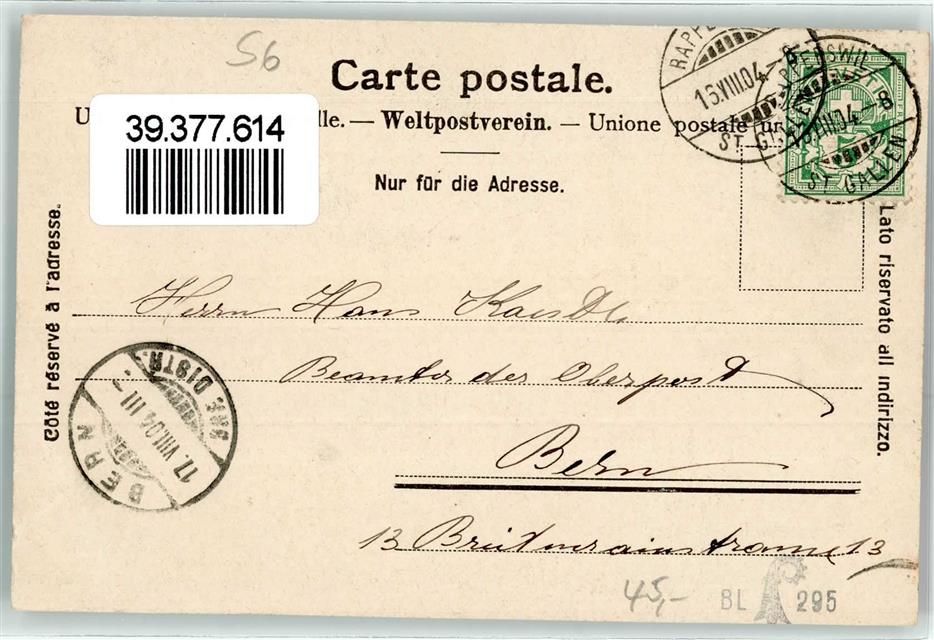 56
Carte postale.
U lle. — Weltpostverein. — Unione postale un
39.377.614
Nur für die Adresse.
RAPPERSWIL
15.VIII.04.–8
ST. GALLEN
RAPPERSWIL
15.VIII.04.–8
ST. GALLEN
Côté réservé à l'adresse.
Lato riservato all indirizzo.
Herrn Hans
Beamter der Oberpost
Bern
13 Breitenrainstrasse 13
BERN
17.VIII.04 III–
BRF. DISTR.
45,-
BL 295